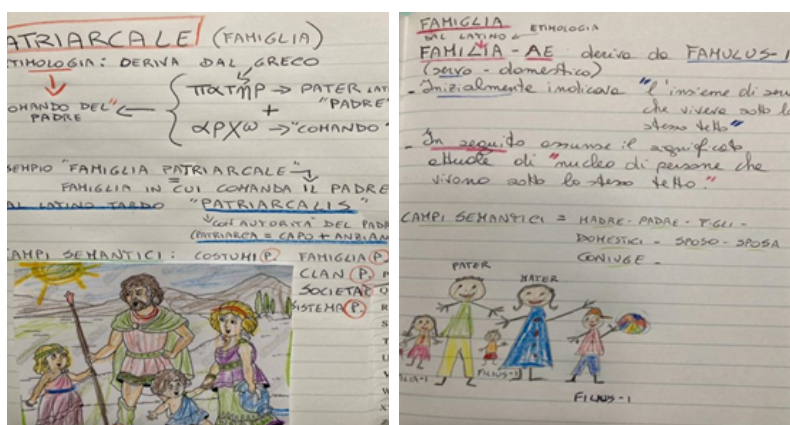 ATRIARCALE (FAMIGLIA)
TIMOLOGIA: DERIVA DAL GRECO
πατηρ → PATER LAT
"PADRE"
+
αρχω → "COMANDO"
OMANDO DEL"
PADRE
SEMPIO "FAMIGLIA PATRIARCALE"
FAMIGLIA IN CUI COMANDA IL PADRE
AL LATINO TARDO "PATRIARCALIS"
"CON AUTORITA' DEL PADR
(PATRIARCA = CAPO + ANZIAN
CAMPI SEMANTICI: COSTUMI P. FAMIGLIA P.
CLAN P.
SOCIETA'
SISTEMA P.
FAMIGLIA ETIMOLOGIA
DAL LATINO
FAMILIA - AE deriva da FAMULUS-I
(servo - domestico)
- Inizialmente indicava "l'insieme di
che viveva sotto lo
stesso tetto"
- In seguito assunse il significato
attuale di "nucleo di persone che
vivono sotto lo stesso tetto."
CAMPI SEMANTICI = MADRE - PADRE - FIGLI -
DOMESTICI - SPOSO - SPOSA
CONIUGE -
PATER
MATER
FILIUS-I
FILIUS-I